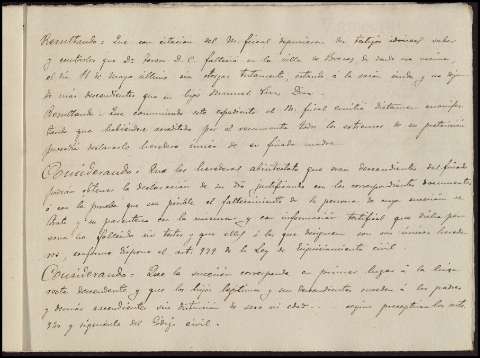 Resultando: Que con citacion del M. fiscal depusieron dos testigos saber
y constarles que Dª. D. C. falleció en la villa de de donde era vecina,
el dia 11 de Mayo último sin otorgar testamento, estando á la sazón viuda y no dejando
más descendientes que su hijo Manuel
Resultando: Que comunicado este expediente al M. fiscal emitió dictamen manifes-
tando que habiéndose acreditado por el recurrente todos los extremos de su pretensión
procedía declararle heredero único de su finada madre.
Considerando: Que los herederos abintestato que sean descendientes del finado
podrán obtener la declaración de su dro justificando con los correspondientes documentos
ó con la prueba que sea posible el fallecimiento de la persona de cuya sucesión se
trata y su parentesco con la misma, y con información testifical que dicha per-
sona ha fallecido sin testar y que ellos ó los que designen son sus únicos herede-
ros, conforme dispone el art. 979 de la Ley de Enjuiciamiento civil.
Considerando: Que la sucesión corresponde en primer lugar á la línea
recta descendente y que los hijos legítimos y sus descendientes suceden á los padres
y demás ascendientes sin distinción de sexo ni edad según preceptúan los arts.
930 y siguiente del Código civil.